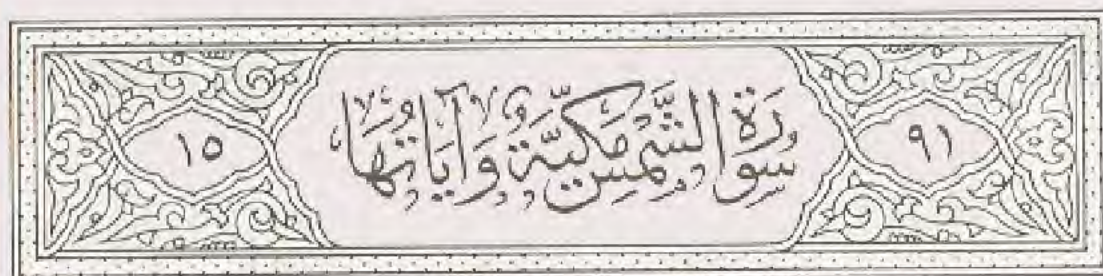 ٩١ سُورَةُ الشَّمْسِ مَكِيَّةٌ وَآيَاتُهَا ١٥